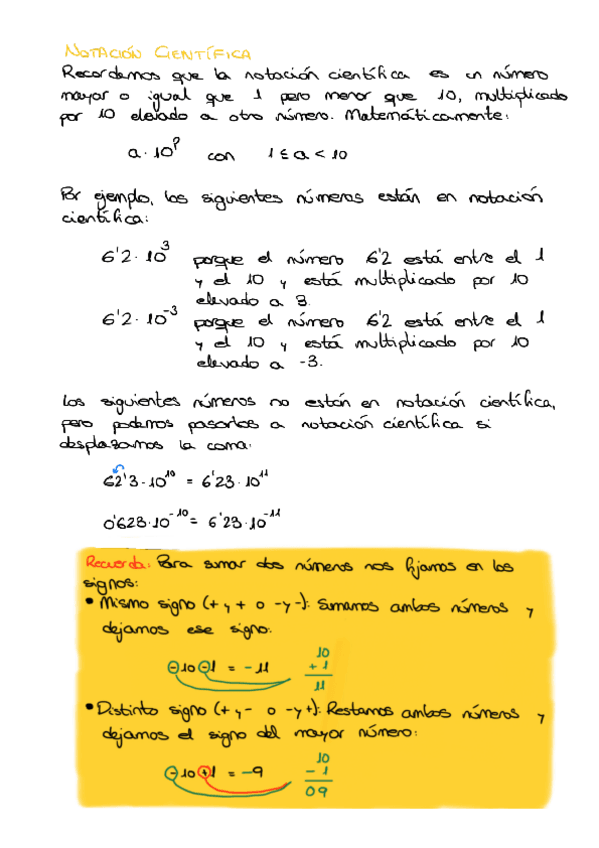 NOTACIÓN CIENTÍFICA
Recordamos que la notación científica es un número
mayor o igual que 1 pero menor que 10, multiplicado
por 10 elevado a otro número. Matemáticamente:
a · 10^? con 1 ≤ a < 10
Por ejemplo, los siguientes números están en notación
científica:
6'2 · 10^3 porque el número 6'2 está entre el 1
y el 10 y está multiplicado por 10
elevado a 3.
6'2 · 10^-3 porque el número 6'2 está entre el 1
y el 10 y está multiplicado por 10
elevado a -3.
Los siguientes números no están en notación científica,
pero podemos pasarlos a notación científica si
desplazamos la coma:
62'3 · 10^10 = 6'23 · 10^11
0'623 · 10^-10 = 6'23 · 10^-11
Recuerda: Para sumar dos números nos fijamos en los
signos:
• Mismo signo (+ y + o - y -): Sumamos ambos números y
dejamos ese signo.
-10 -1 = -11
10
+ 1
11
• Distinto signo (+ y - o - y +): Restamos ambos números y
dejamos el signo del mayor número:
-10 +1 = -9
10
- 1
09